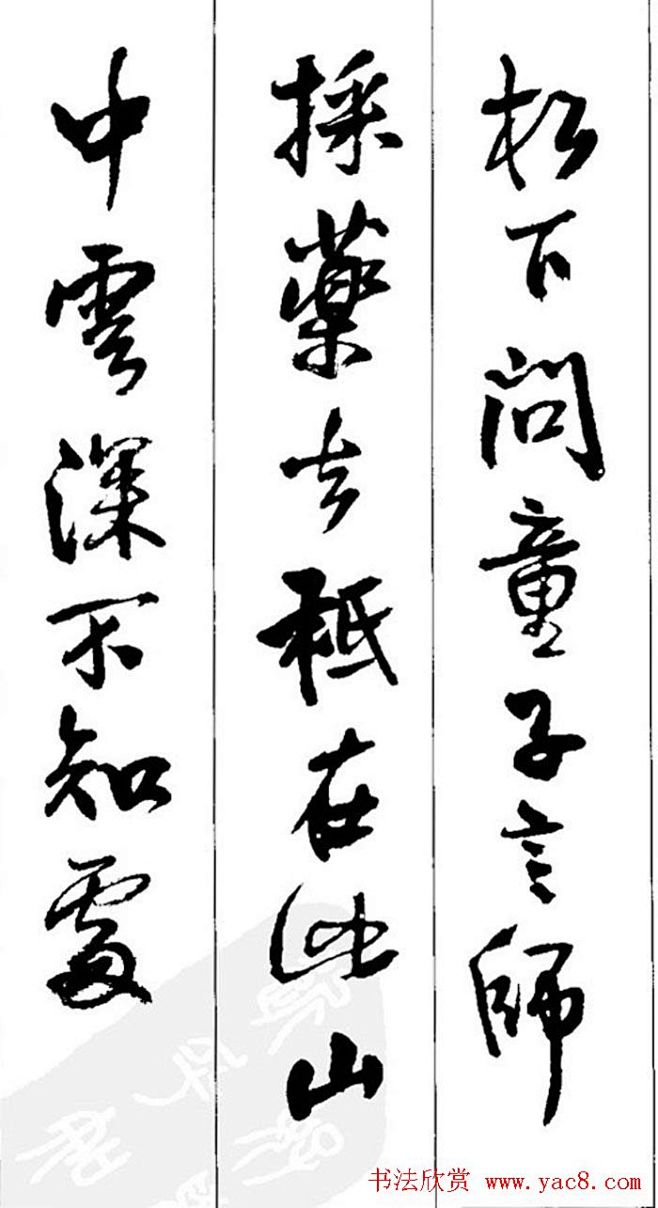 松下問童子言師
採藥去秪在此山
中雲深不知處
书法欣赏 www.yac8.com